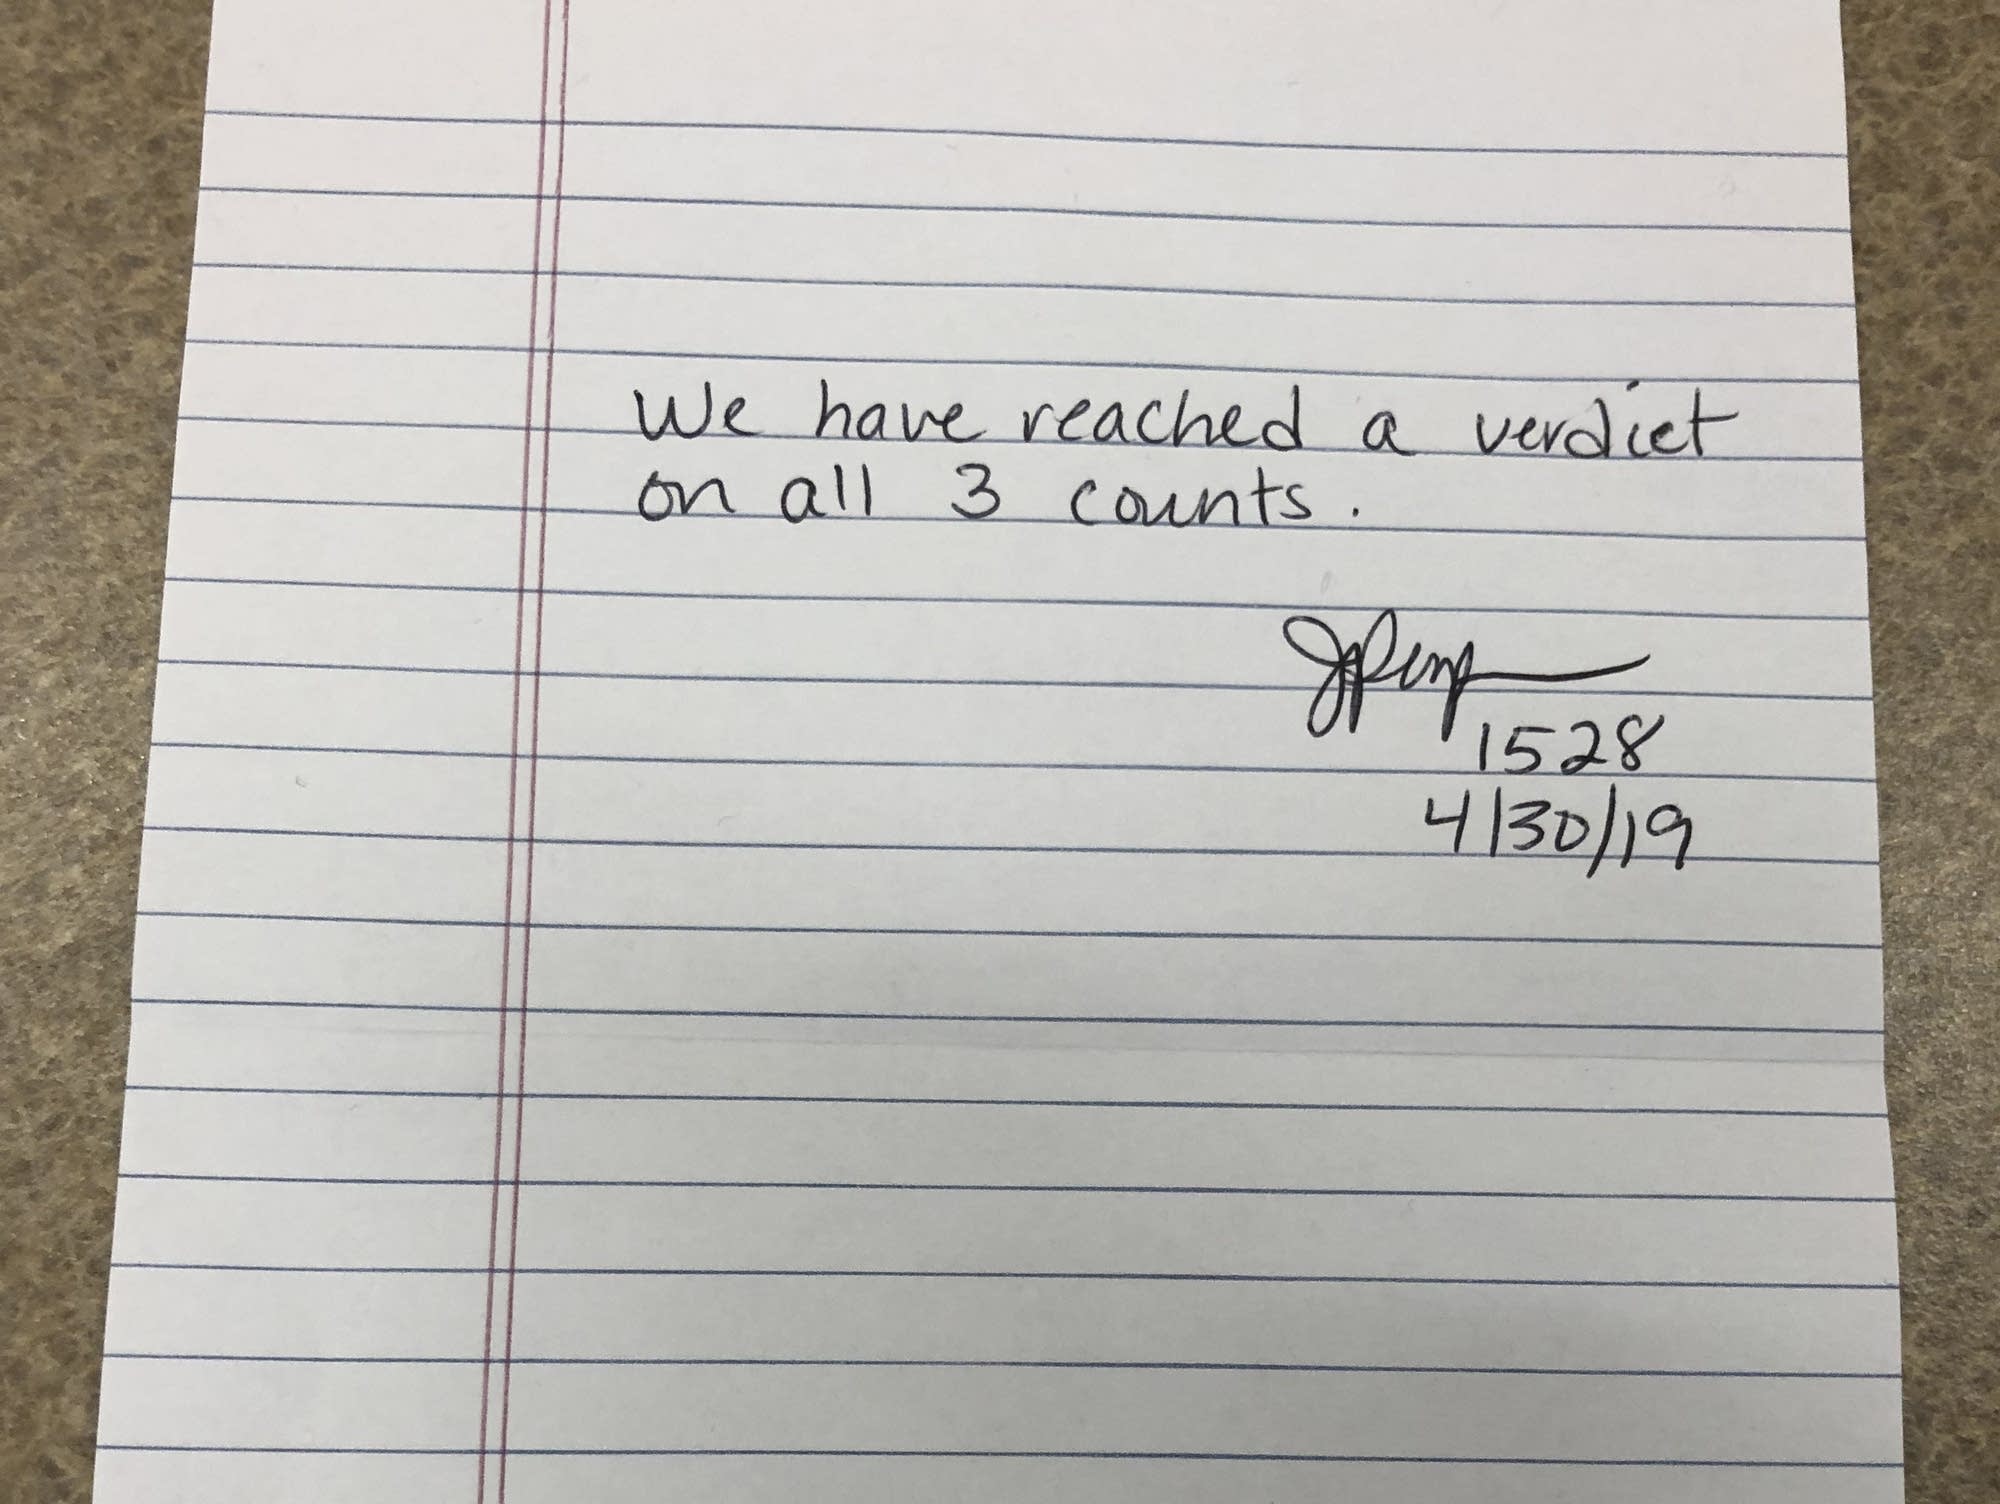 We have reached a verdict
on all 3 counts.
1528
4/30/19